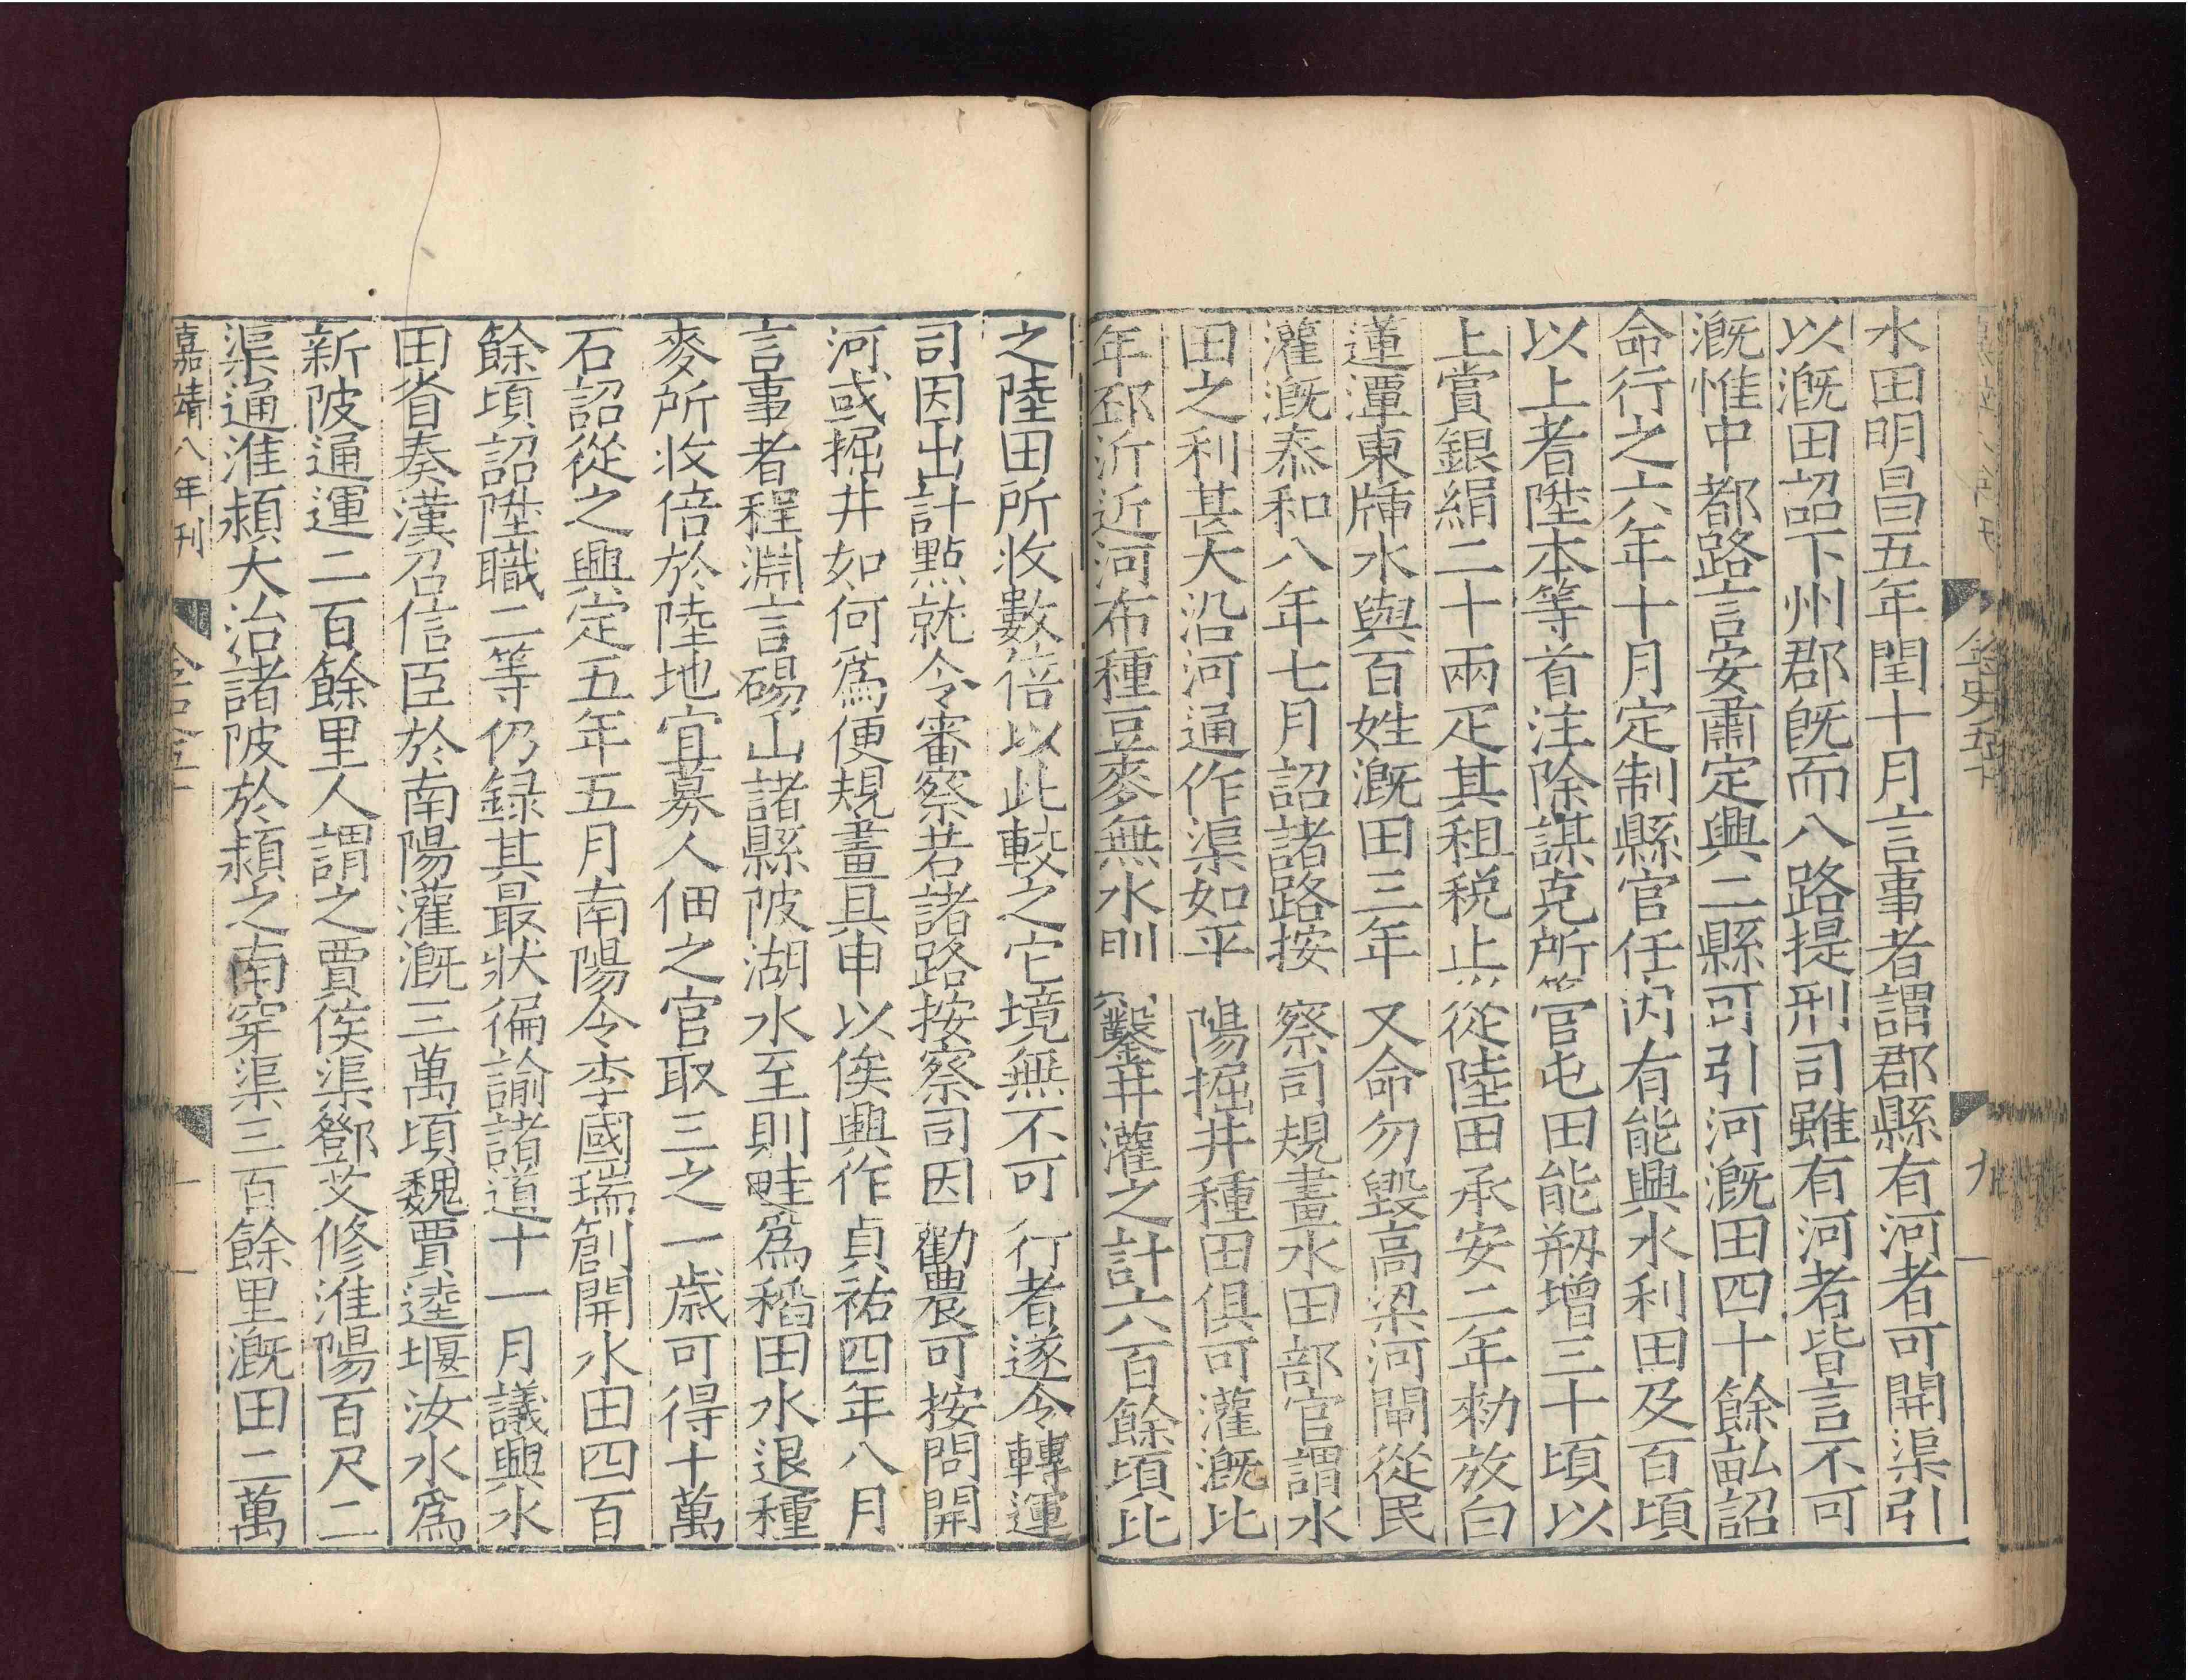 金史五十
九
水田明昌五年閏十月言事者謂郡縣有河者可開渠引
以漑田詔下州郡旣而八路提刑司雖有河者皆言不可
漑惟中都路言安肅定興二縣可引河漑田四十餘畝詔
命行之六年十月定制縣官任内有能興水利田及百頃
以上者陞本等首注除謀克所管屯田能剏增三十頃以
上賞銀絹二十兩疋其租税止從陸田承安二年勑放白
蓮潭東牐水與百姓漑田三年又命勿毀高梁河閘從民
灌漑泰和八年七月詔諸路按察司規畫水田部官謂水
田之利甚大沿河通作渠如平陽掘井種田俱可灌漑比
年邳沂近河布種豆麥無水則鑿井灌之計六百餘頃比
之陸田所收數倍以此較之它境無不可行者遂令轉運
司因出計點就令審察若諸路按察司因勸農可按問開
河或掘井如何爲便規畫具申以俟興作貞祐四年八月
言事者程淵言碭山諸縣陂湖水至則畦爲稻田水退種
麥所收倍於陸地宜募人佃之官取三之一歳可得十萬
石詔從之興定五年五月南陽令李國瑞創開水田四百
餘頃詔陞職二等仍録其最狀徧諭諸道十一月議興水
田省奏漢召信臣於南陽灌漑三萬頃魏賈逵堰汝水爲
新陂通運二百餘里人謂之賈侯渠鄧艾修淮陽百尺二
渠通淮潁大治諸陂於潁之南穿渠三百餘里漑田二萬
嘉靖八年刊